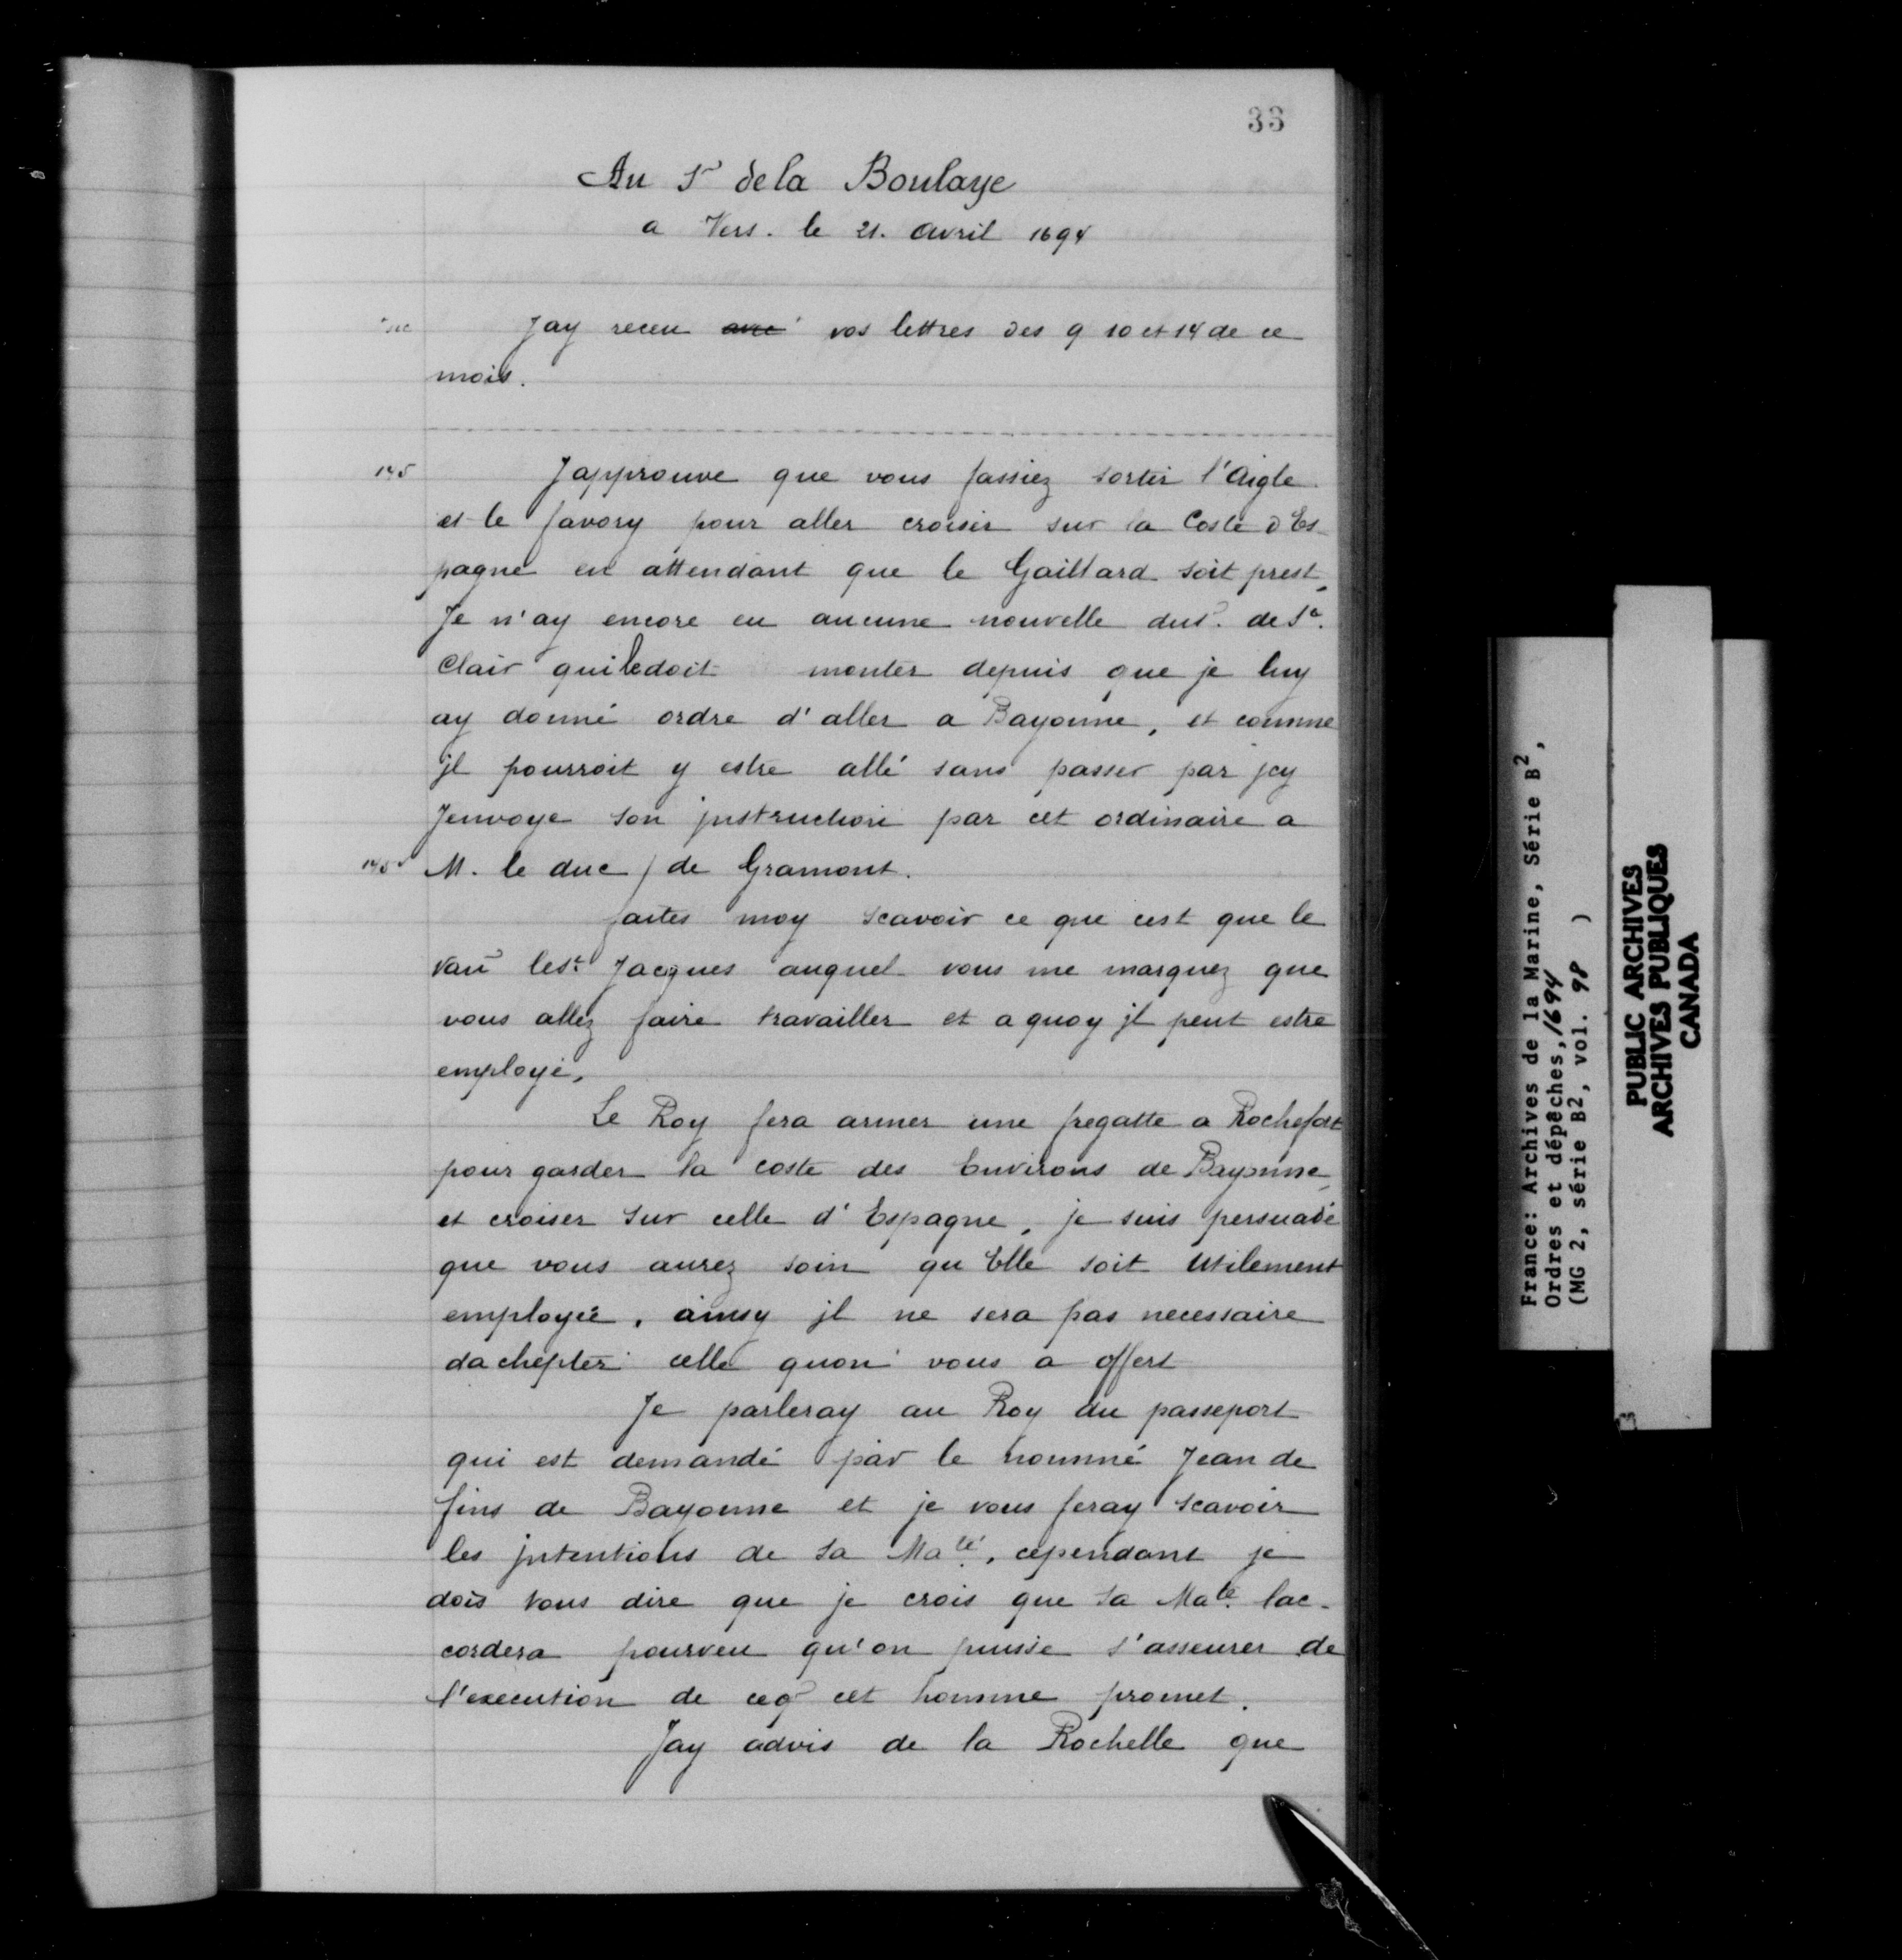 33
Au Sr de la Boulaye
a Vers. le 21. avril 1694
Jay receu avec vos lettres des 9 10 et 14 de ce
mois.
145
Japprouve que vous fassiez sortir l'aigle
et le favory pour aller croisir sur la Coste d'Es-
pagne en attendant que le Gaillard soit prest,
Je n'ay encore eu aucune nouvelle du s. de St.
Clair qui le doit monter depuis que je luy
ay donné ordre d'aller a Bayonne, et comme
jl pourroit y estre allé sans passer par jcy
Jenvoye son jnstruction par cet ordinaire a
145v M. le duc / de Gramont.
faites moy scavoir ce que cest que le
vau le st Jacques auquel vous me marquez que
vous allez faire travailler et a quoy jl peut estre
employé,
Le Roy fera armer une fregatte a Rochefort
pour garder la coste des Environs de Bayonne,
et croiser sur celle d'Espagne, je suis persuadé
que vous aurez soin qu Elle soit Utilement
employée, ainsy jl ne sera pas necessaire
dachepter celle quon vous a offert
Je parleray au Roy du passeport
qui est demandé par le nommé Jean de
fins de Bayonne et je vous feray scavoir
les jntentions de sa Maté, cependant je
dois vous dire que je crois que sa Maté lac-
cordera pourveu qu'on puisse s'asseurer de
l'execution de ceq cet homme promet.
Jay advis de la Rochelle que
France: Archives de la Marine, Série B2,
Ordres et dépêches, 1694
(MG 2, série B2, vol. 98 )
PUBLIC ARCHIVES
ARCHIVES PUBLIQUES
CANADA